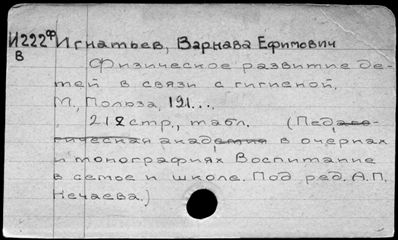 И222ф Игнатьев, Варнава Ефимович
В
Физическое развитие де-
тей в связи с гигиеной.
М., Польза, 191...
212 стр., табл. (Педаго-
гическая академия в очерках
и монографиях Воспитание
в семье и школе. Под ред. А.П.
Нечаева.)